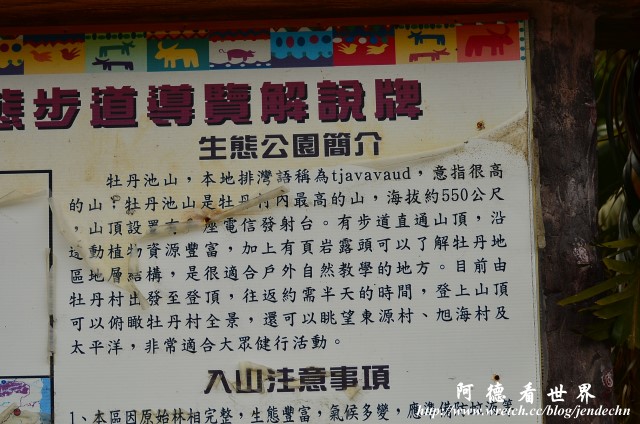 態步道導覽解說牌
生態公園簡介
牡丹池山，本地排灣語稱為tjavavaud，意指很高
的山，牡丹池山是牡丹村內最高的山，海拔約550公尺
，山頂設置有一座電信發射台。有步道直通山頂，沿
途動植物資源豐富，加上有頁岩露頭可以了解牡丹地
區地層結構，是很適合戶外自然教學的地方。目前由
牡丹村出發至登頂，往返約需半天的時間，登上山頂
可以俯瞰牡丹村全景，還可以眺望東源村、旭海村及
太平洋，非常適合大眾健行活動。
入山注意事項
1、本區因原始林相完整，生態豐富，氣候多變，應準備防蚊液等
阿德看世界
http://www.wretch.cc/blog/jendechn